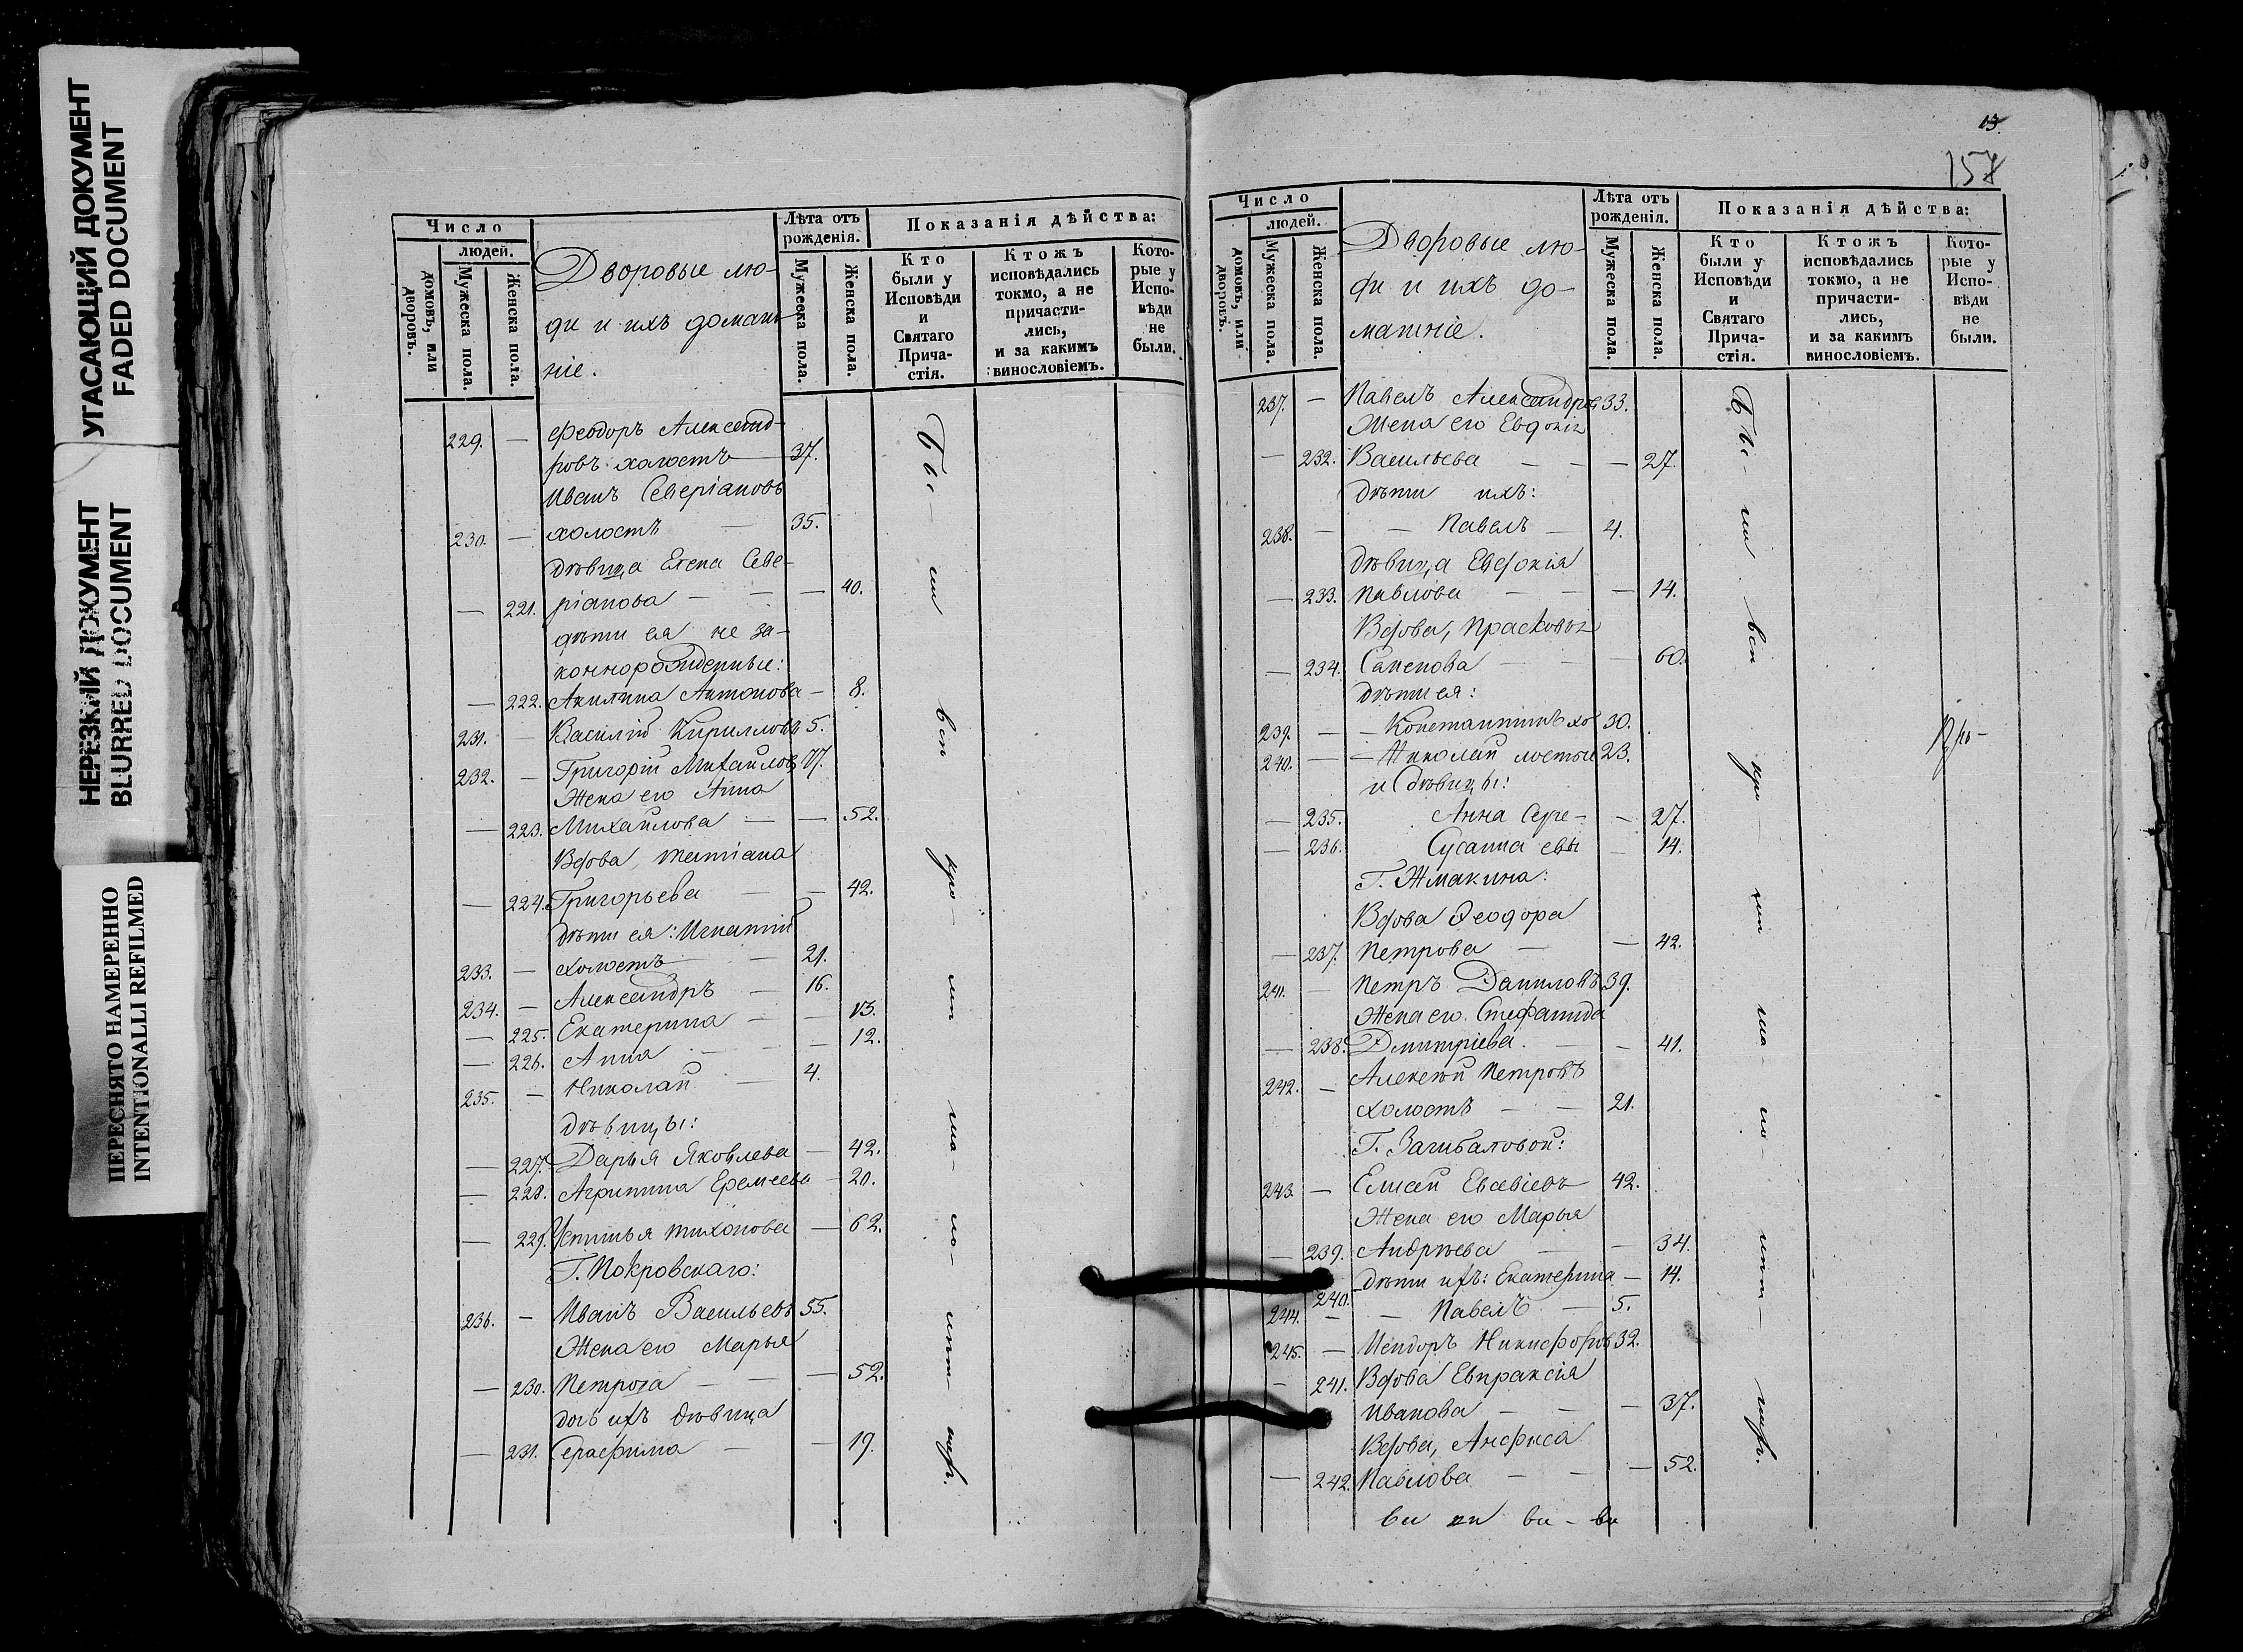 УГАСАЮЩИЙ ДОКУМЕНТ
FADED DOCUMENT
НЕРЕЗКИЙ ДОКУМЕНТ
BLURRED DOCUMENT
ПЕРЕСНЯТО НАМЕРЕННО
INTENTIONALLI REFILMED
Число
людей.
домовъ, или дворовъ.
Мужеска пола.
Женска пола.
Дворовые лю-
ди и ихъ домаш-
ніе.
Лѣта отъ рожденія.
Мужеска пола.
Женска пола.
Показанія дѣйства:
Кто были у Исповѣди и Святаго Прича-стія.
Ктожъ исповѣдались токмо, а не причасти-лись, и за какимъ винословіемъ.
Кото-рые у Испо-вѣди не были.
229. — Феодоръ Александ-
ровъ холостъ 37.
Иванъ Северіановъ
230. — холостъ — 35.
дѣвица Елена Севе-
— 221. ріанова — — — 40.
дѣти ея не за-
коннорожденные:
— 222. Акилина Антонова — 8.
231. — Василій Кирилловъ 5.
232. — Григорій Михайловъ 77.
Жена его Анна
— 223. Михайлова — — 52.
Вдова Татіана
— 224. Григорьева — — 42.
дѣти ея: Игнатій
233. — холостъ — 21.
234. — Александръ — 16.
— 225. Екатерина — — 13.
— 226. Анна — — 12.
235. — Николай — 4.
дѣвицы:
— 227. Дарья Яковлева — 42.
— 228. Агрипина Еремеева — 20.
— 229. Устинья Тихонова — 62.
Г. Покровскаго:
236. — Иванъ Васильевъ 55.
Жена его Марья
— 230. Петрова — — — 52.
дочь ихъ дѣвица
— 231. Серафима — — 19.
Бы-
ли
вси
13.
157
Число
людей.
домовъ, или дворовъ.
Мужеска пола.
Женска пола.
Дворовые лю-
ди и ихъ до-
машніе.
Лѣта отъ рожденія.
Мужеска пола.
Женска пола.
Показанія дѣйства:
Кто были у Исповѣди и Святаго Прича-стія.
Ктожъ исповѣдались токмо, а не причасти-лись, и за какимъ винословіемъ.
Кото-рые у Испо-вѣди не были.
237. — Павелъ Александровъ 33.
Жена его Евдокія
— 232. Васильева — — — 27.
дѣти ихъ:
238. — — Павелъ — 4.
дѣвица Евдокія
— 233. Павлова — — — 14.
Вдова, Прасковья
— 234. — — — 60.
дѣти ея:
239. — — Константинъ хо 30.
240. — — Николай лостые 23.
и дѣвицы:
— 235. Анна Серге- — 27.
— 236. Сусанна евы — 14.
Г. Жмакина:
Вдова Ѳеодора
— 237. Петрова — — 42.
241. — Петръ Даниловъ 39.
Жена его Стефанида
— 238. Дмитріева. — — 41.
242. — Алексѣй Петровъ
холостъ — — 21.
Г. Загибаловой:
243. — Елисей Евсевіевъ 42.
Жена его Марья
— 239. Андрѣева — — 34.
240. дѣти ихъ: Екатерина — 14.
244. — — Павелъ — 5.
245. — Исидоръ Никифоровъ 32.
— 241. Вдова Евпраксія
Иванова — — — 37.
Вдова, Анфиса
— 242. Павлова — — — 52.
Бы-
ли
вси